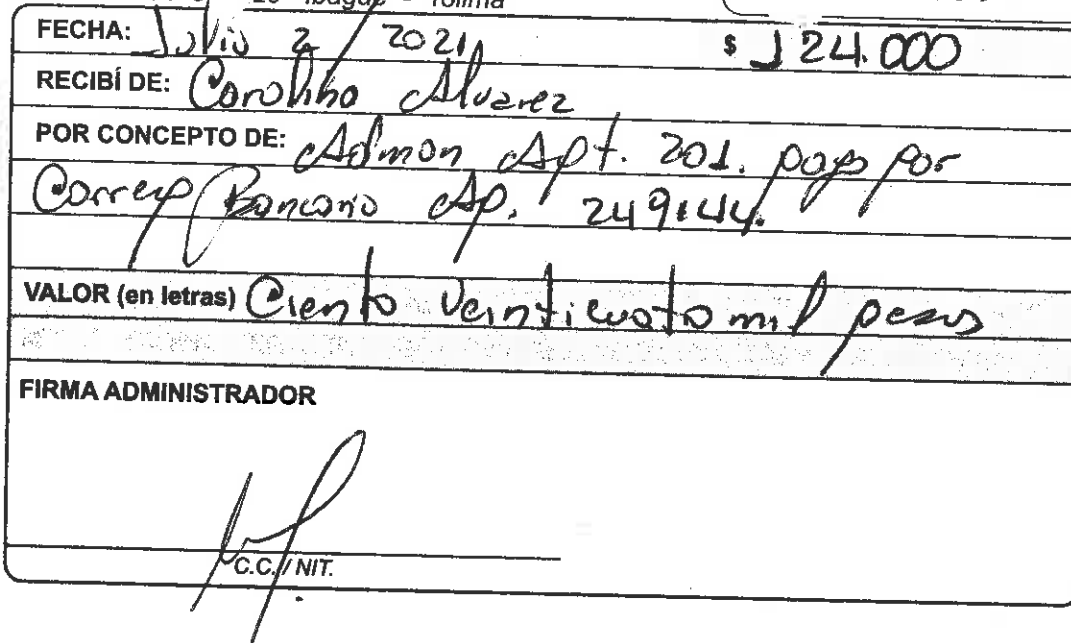 Ibagué - Tolima
FECHA: Julio 2 / 2021 $ 124.000
RECIBÍ DE: Carolina Alvarez
POR CONCEPTO DE: Admon Apt. 201. pago por
Corresp Bancario Ap. 249144.
VALOR (en letras) Ciento Veinticuatro mil pesos
FIRMA ADMINISTRADOR
C.C. / NIT.